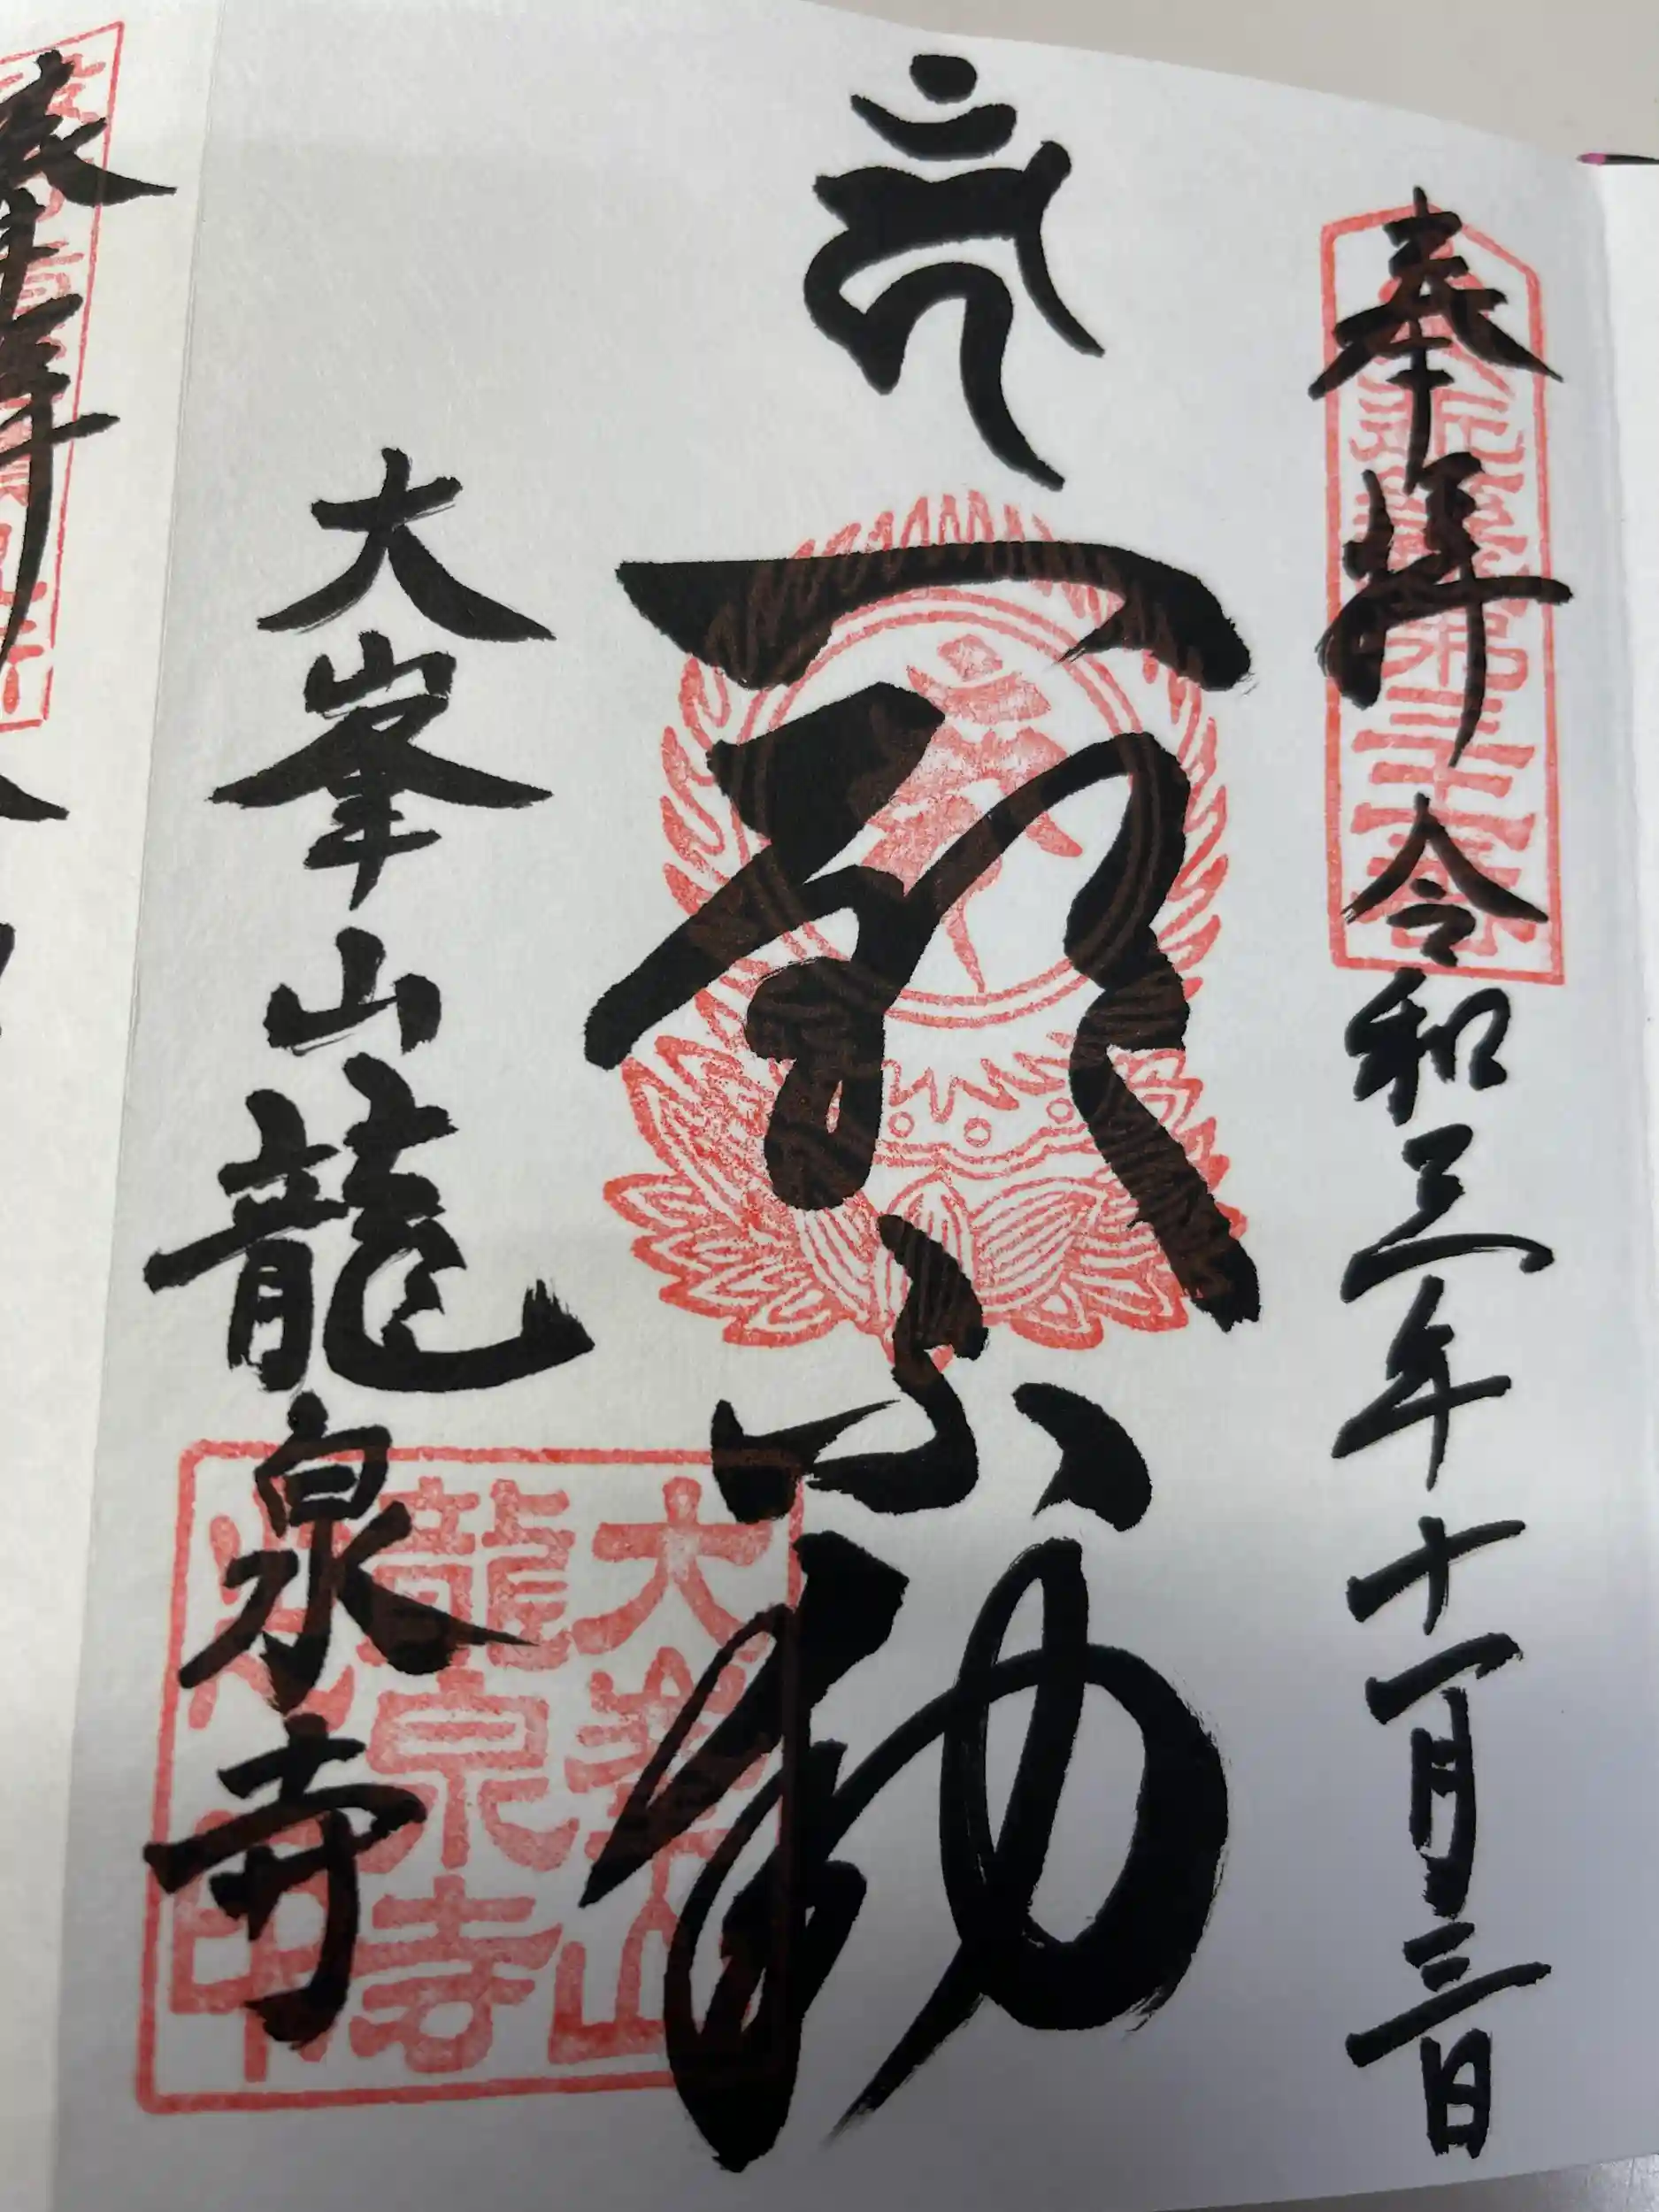 奉拝 令和三年十一月三日
一願不動
大峯山龍泉寺
大峯山
龍泉寺
奉拝